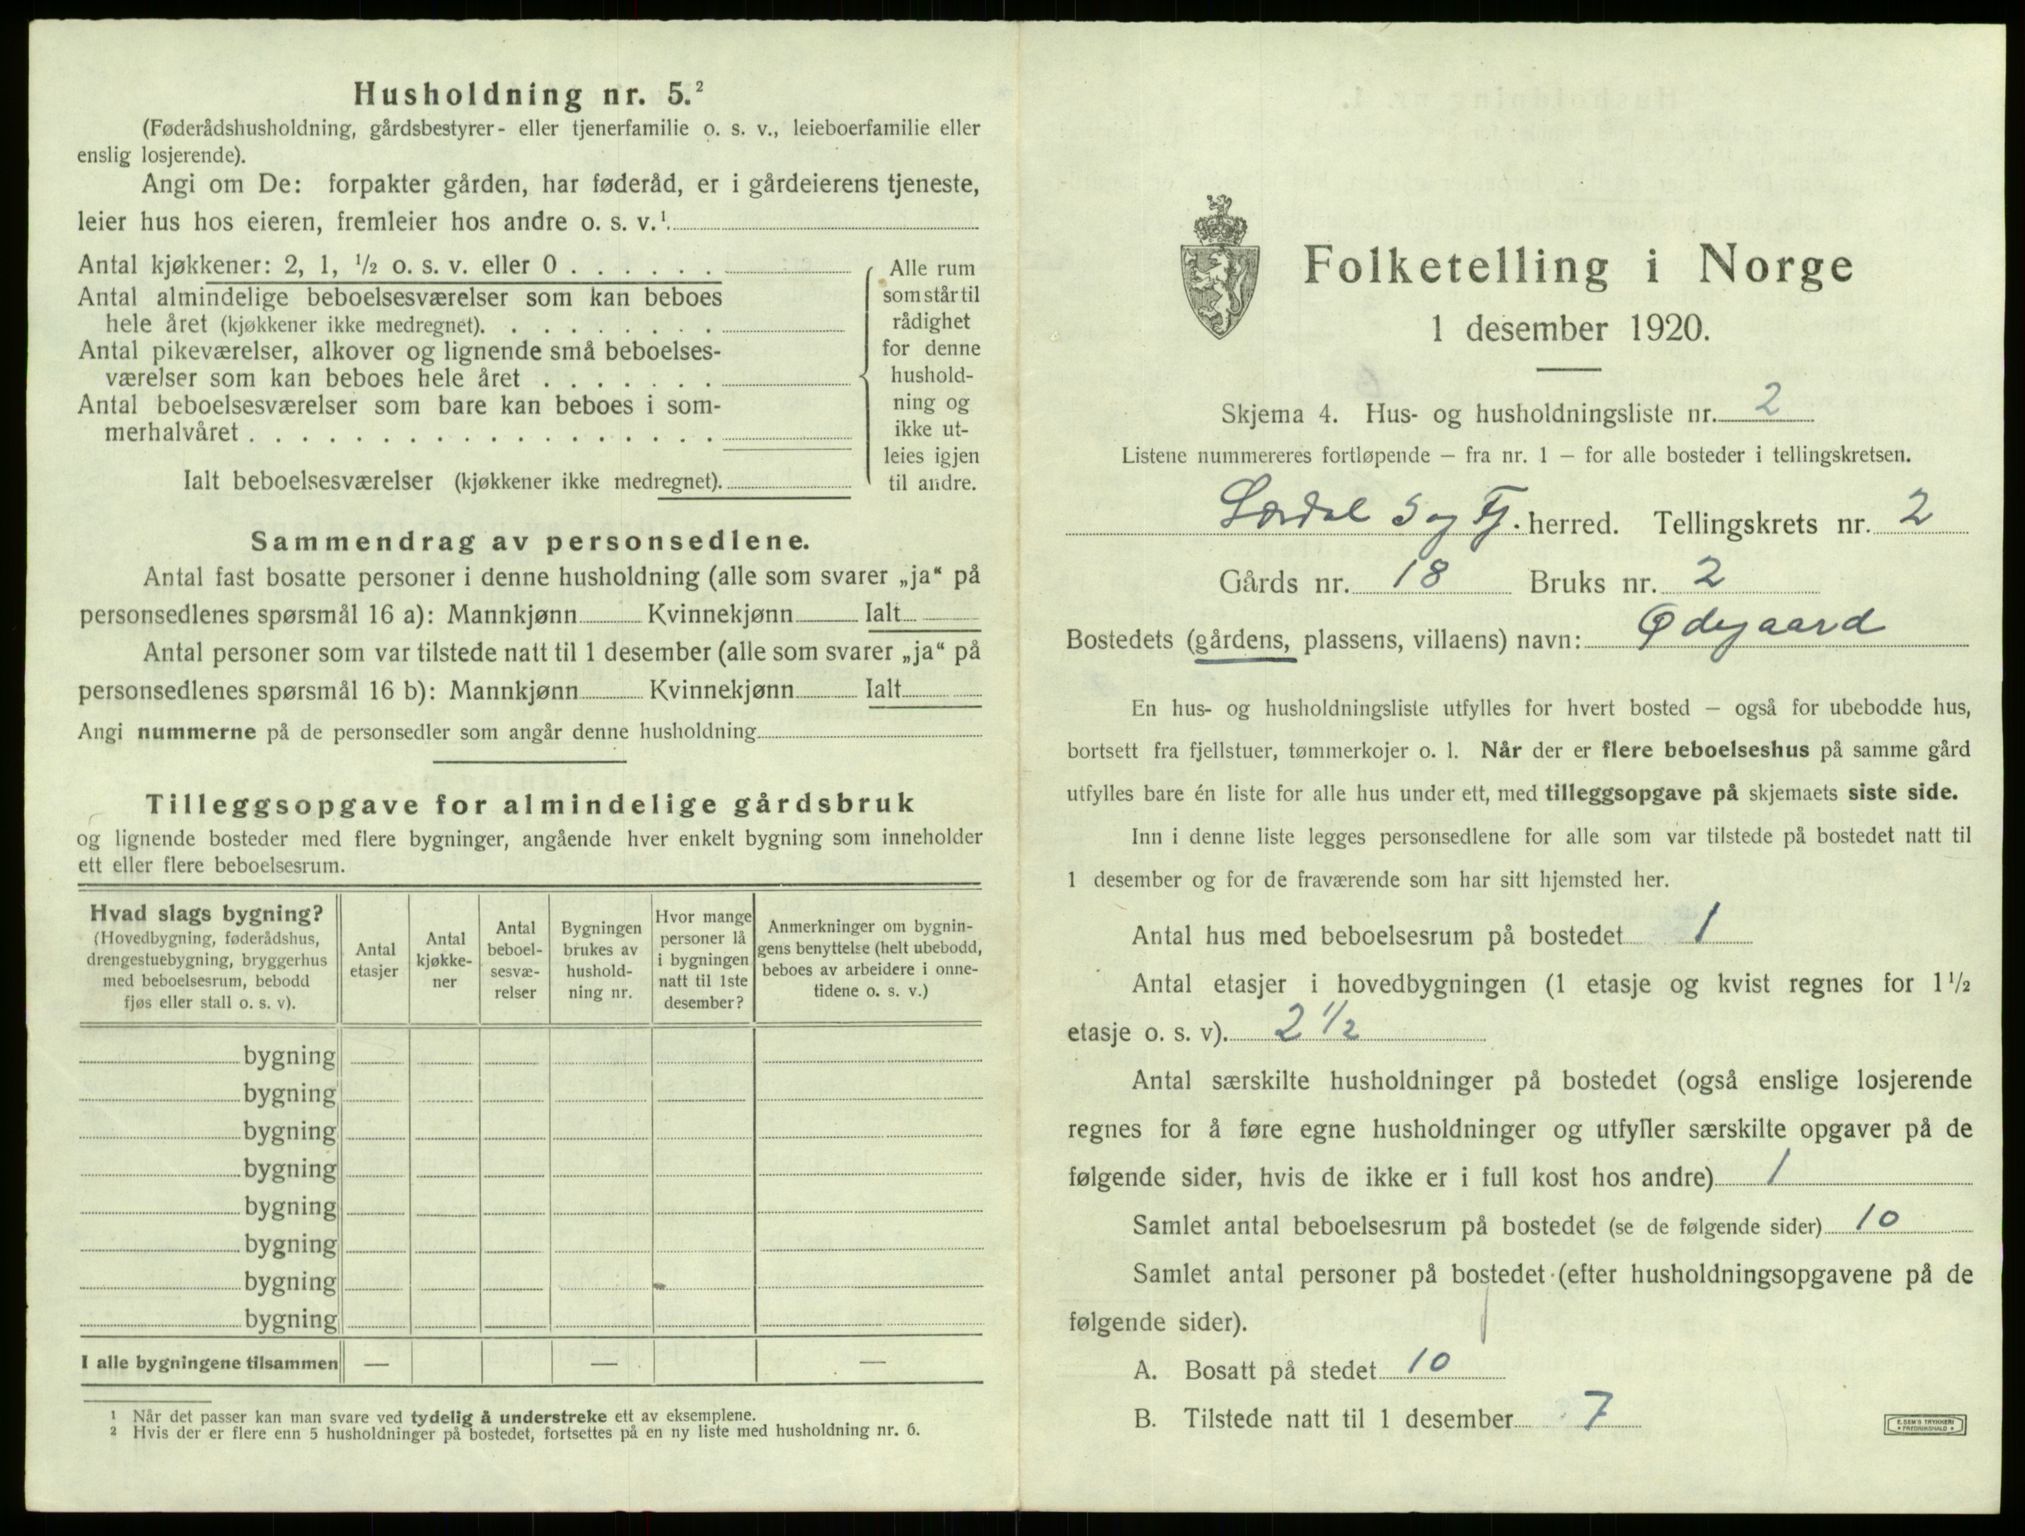 Husholdning nr. 5.²
(Føderådshusholdning, gårdsbestyrer- eller tjenerfamilie o. s. v., leieboerfamilie eller
enslig losjerende).
Angi om De: forpakter gården, har føderåd, er i gårdeierens tjeneste,
leier hus hos eieren, fremleier hos andre o. s. v.¹
Antal kjøkkener: 2, 1, ½ o. s. v. eller 0
Antal almindelige beboelsesværelser som kan beboes
hele året (kjøkkener ikke medregnet)
Antal pikeværelser, alkover og lignende små beboelses-
værelser som kan beboes hele året
Antal beboelsesværelser som bare kan beboes i som-
merhalvåret
Ialt beboelsesværelser (kjøkkener ikke medregnet)
Alle rum
som står til
rådighet
for denne
hushold-
ning og
ikke ut-
leies igjen
til andre.
Sammendrag av personsedlene.
Antal fast bosatte personer i denne husholdning (alle som svarer „ja“ på
personsedlenes spørsmål 16 a): Mannkjønn Kvinnekjønn Ialt
Antal personer som var tilstede natt til 1 desember (alle som svarer „ja“ på
personsedlenes spørsmål 16 b): Mannkjønn Kvinnekjønn Ialt
Angi nummerne på de personsedler som angår denne husholdning
Tilleggsopgave for almindelige gårdsbruk
og lignende bosteder med flere bygninger, angående hver enkelt bygning som inneholder
ett eller flere beboelsesrum.
Hvad slags bygning?
(Hovedbygning, føderådshus,
drengestuebygning, bryggerhus
med beboelsesrum, bebodd
fjøs eller stall o. s. v).
Antal
etasjer
Antal
kjøkke-
ner
Antal
beboel-
sesvæ-
relser
Bygningen
brukes av
hushold-
ning nr.
Hvor mange
personer lå
i bygningen
natt til 1ste
desember?
Anmerkninger om bygnin-
gens benyttelse (helt ubebodd,
beboes av arbeidere i onne-
tidene o. s. v.)
bygning
bygning
bygning
bygning
bygning
bygning
bygning
bygning
I alle bygningene tilsammen — — —
¹ Når det passer kan man svare ved tydelig å understreke ett av eksemplene.
² Hvis der er flere enn 5 husholdninger på bostedet, fortsettes på en ny liste med husholdning nr. 6.
Folketelling i Norge
1 desember 1920.
Skjema 4. Hus- og husholdningsliste nr. 2
Listene nummereres fortløpende — fra nr. 1 — for alle bosteder i tellingskretsen.
Lærdal S og Fj. herred. Tellingskrets nr. 2
Gårds nr. 18 Bruks nr. 2
Bostedets (gårdens, plassens, villaens) navn: Ødegaard
En hus- og husholdningsliste utfylles for hvert bosted — også for ubebodde hus,
bortsett fra fjellstuer, tømmerkojer o. l. Når der er flere beboelseshus på samme gård
utfylles bare én liste for alle hus under ett, med tilleggsopgave på skjemaets siste side.
Inn i denne liste legges personsedlene for alle som var tilstede på bostedet natt til
1 desember og for de fraværende som har sitt hjemsted her.
Antal hus med beboelsesrum på bostedet 1
Antal etasjer i hovedbygningen (1 etasje og kvist regnes for 1½
etasje o. s. v). 2 ½
Antal særskilte husholdninger på bostedet (også enslige losjerende
regnes for å føre egne husholdninger og utfyller særskilte opgaver på de
følgende sider, hvis de ikke er i full kost hos andre) 1
Samlet antal beboelsesrum på bostedet (se de følgende sider) 10
Samlet antal personer på bostedet (efter husholdningsopgavene på de
følgende sider).
A. Bosatt på stedet 10
B. Tilstede natt til 1 desember 7
E. SEM'S TRYKKERI
FREDRIKSHALD